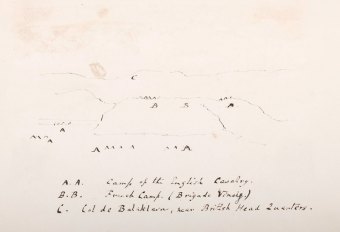 C
B B A
A
A A
A.A. Camp of the English Cavalry.
B.B. French Camp. (Brigade Vinoy.)
C. Col de Balaklava, near British Head Quarters.